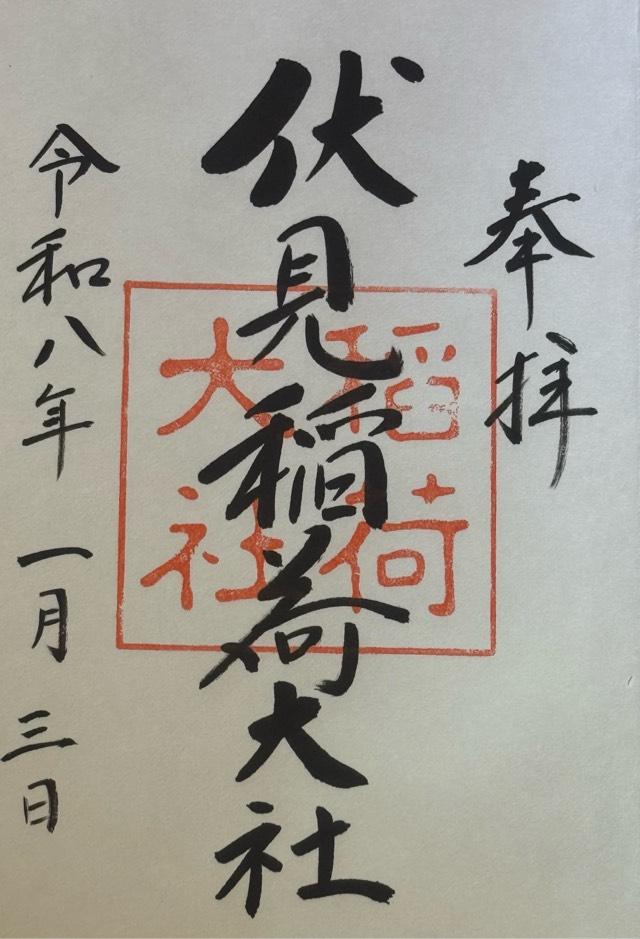 奉拝
伏見稲荷大社
稲荷
大社
令和八年 一月 三日